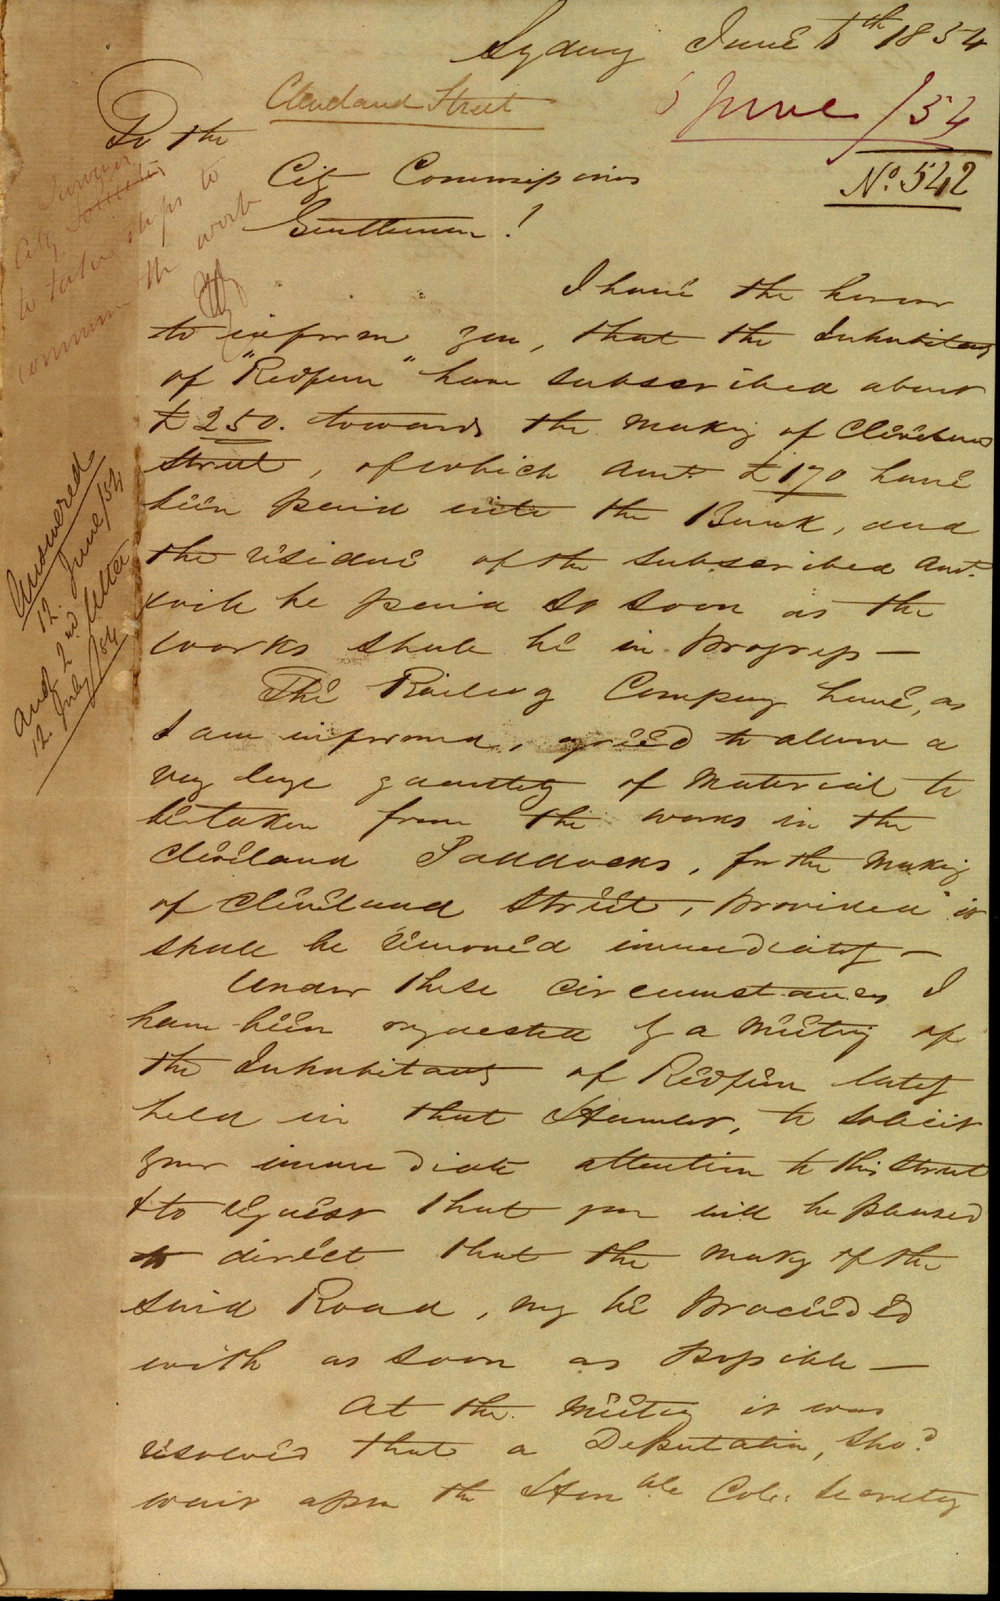 Sydney June 5th 1854
Cleveland Street
5 June /54
No. 542
To the
City Commissioners
Gentlemen!
City Surveyor
to take steps to
commence the work
I have the honor
to inform you, that the Inhabitants
of "Redfern" have subscribed about
£250. towards the making of Cleveland
Street, of which amt. £170 have
been paid into the Bank, and
the residue of the subscribed amt.
will be paid so soon as the
works shall be in Progress —
The Railway Company have, as
I am informed, agreed to allow a
very large quantity of Material to
be taken from the works in the
Cleveland Paddocks, for the making
of Cleveland Street, provided it
shall be removed immediately —
Under these circumstances I
have been requested by a Meeting of
the Inhabitants of Redfern lately
held in that Hamlet, to solicit
your immediate attention to this Street
& to request that you will be pleased
to direct that the making of the
said Road, may be Proceeded
with as soon as Possible —
At the Meeting it was
resolved that a Deputation, shod.
wait upon the Honble Col: Secretary
Answered
12 June/54
and 2nd letter
12 July/54